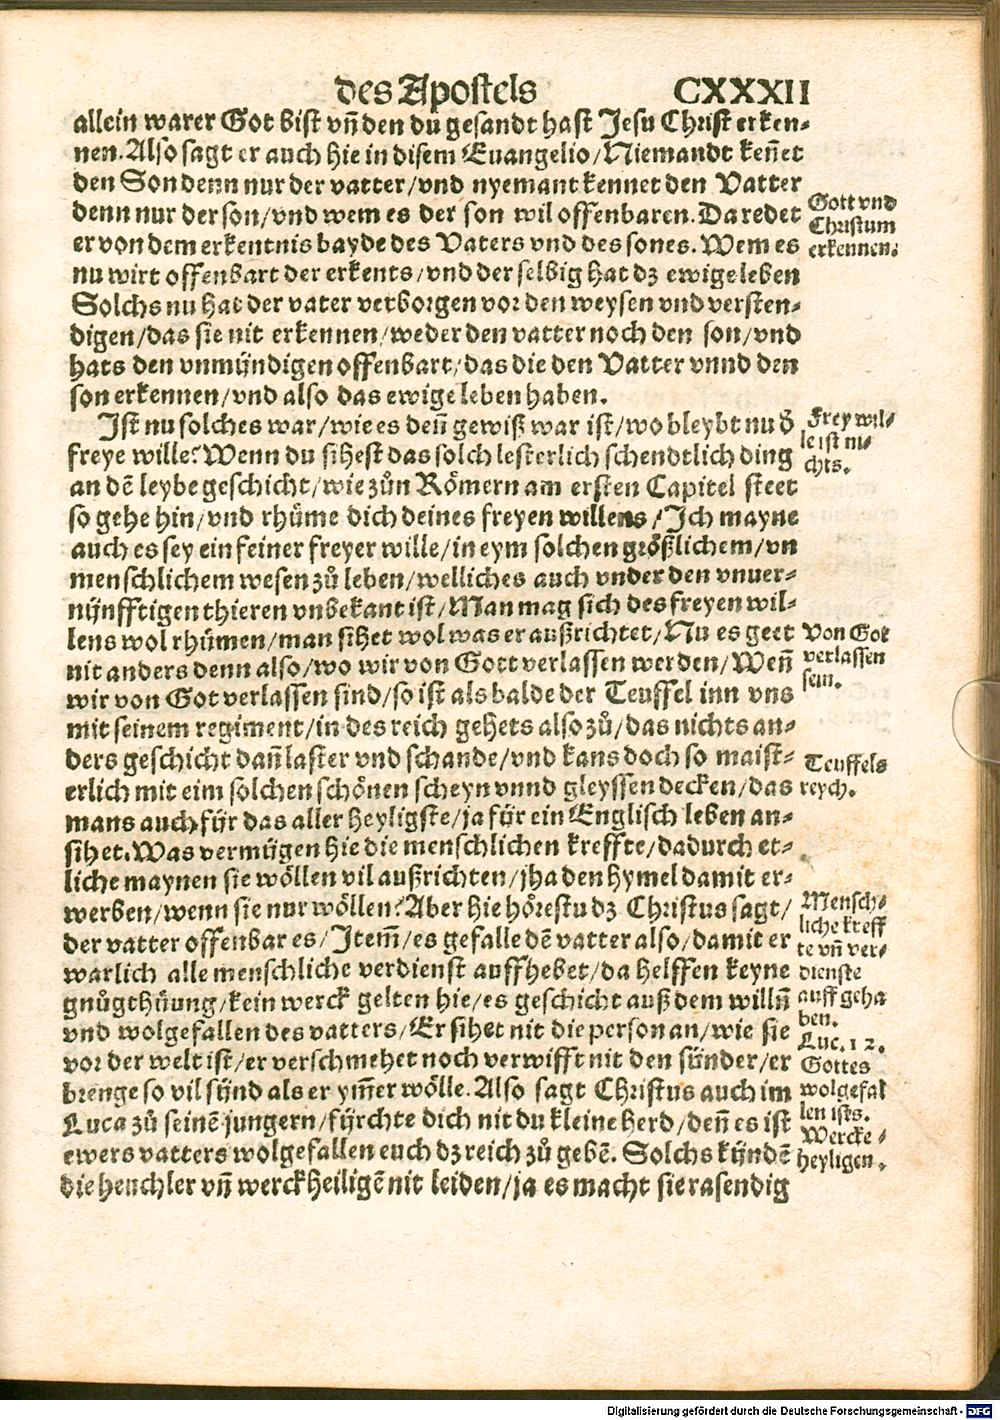 des Apostels CXXXII
allein warer Got bist vñ den du gesandt hast Jesu Christ erken-
nen. Also sagt er auch hie in disem Euangelio/Niemandt keñet
den Son denn nur der vatter/vnd nyemant kennet den Vatter
denn nur der son/vnd wem es der son wil offenbaren. Da redet
er von dem erkentnis bayde des Vaters vnd des sones. Wem es
nu wirt offenbart der erkents/vnd der selbig hat dz ewige leben
Solchs nu hat der vater verborgen vor den weysen vnd versten-
digen/das sie nit erkennen/weder den vatter noch den son/vnd
hats den vnmündigen offenbart/das die den Vatter vnnd den
son erkennen/vnd also das ewige leben haben.
Gott vnd
Christum
erkennen.
Ist nu solches war/wie es deñ gewiß war ist/wo bleybt nu d̕
freye wille? Wenn du sihest das solch lesterlich schendtlich ding
an dē leybe geschicht/wie zůn Römern am ersten Capitel steet
so gehe hin/vnd rhüme dich deines freyen willens/Ich mayne
auch es sey ein feiner freyer wille/in eym solchen größlichem/vn
menschlichem wesen zů leben/welliches auch vnder den vnuer-
nünfftigen thieren vnbekant ist/Man mag sich des freyen wil-
lens wol rhümen/man sihet wol was er außrichtet/Nu es geet
nit anders denn also/wo wir von Gott verlassen werden/Weñ
wir von Got verlassen sind/so ist als balde der Teuffel inn vns
mit seinem regiment/in des reich gehets also zů/das nichts an-
ders geschicht dañ laster vnd schande/vnd kans doch so maist-
erlich mit eim solchen schönen scheyn vnnd gleyssen decken/das
mans auch für das aller heyligste/ja für ein Englisch leben an-
sihet. Was vermügen hie die menschlichen kreffte/dadurch et-
liche maynen sie wöllen vil außrichten/jha den hymel damit er-
werben/wenn sie nur wöllen? Aber hie hörestu dz Christus sagt/
der vatter offenbar es/Item̃/es gefalle dē vatter also/damit er
warlich alle menschliche verdienst auffhebet/da helffen keyne
gnůgthüung/kein werck gelten hie/es geschicht auß dem willñ
vnd wolgefallen des vatters/Er sihet nit die person an/wie sie
vor der welt ist/er verschmehet noch verwifft nit den sünder/er
brenge so vil sünd als er ym̃er wölle. Also sagt Christus auch im
Luca zů seinē jungern/fürchte dich nit du kleine herd/deñ es ist
ewers vatters wolgefallen euch dz reich zů gebē. Solchs kündē
die heuchler vñ werckheiligē nit leiden/ja es macht sie rasendig
Frey wil-
le ist ni-
chts.
Von Got
verlassen
sein.
Teuffels
reych.
Mensch-
liche kreff
te vñ ver-
dienste
auff geha
ben.
Luc. 12.
Gottes
wolgefal
len ists.
Wercke-
heyligen.
Digitalisierung gefördert durch die Deutsche Forschungsgemeinschaft - DFG